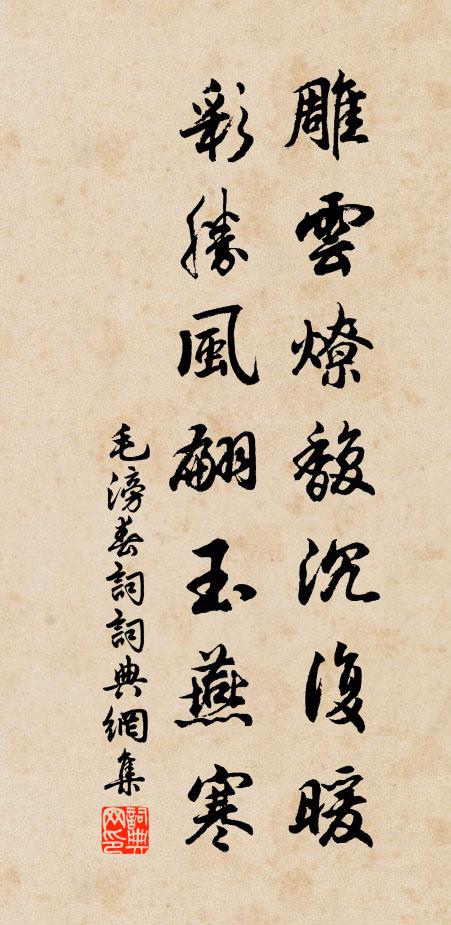 雕雲燎馥沉復暖
彩勝風翩玉燕寒
毛滂春詞詞典網集
詞典网印